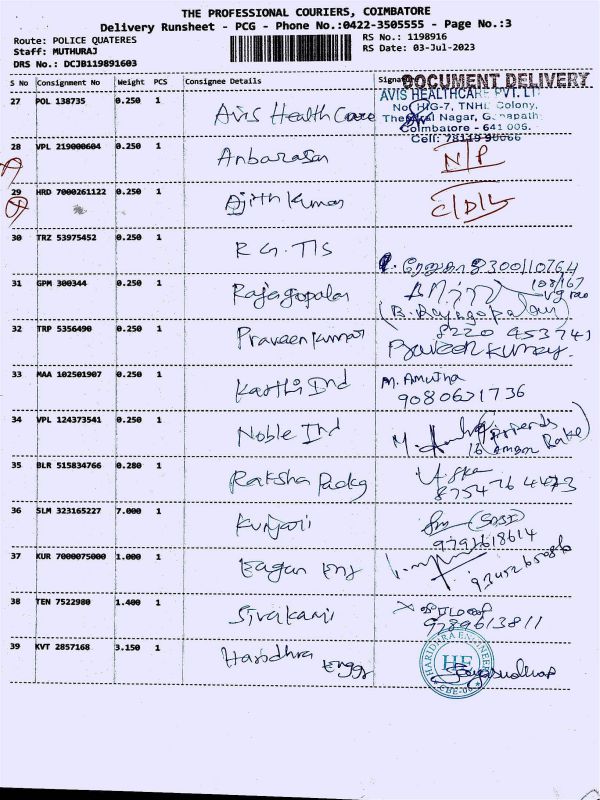 THE PROFESSIONAL COURIERS, COIMBATORE
Delivery Runsheet - PCG - Phone No.:0422-3505555 - Page No.:3
Route: POLICE QUATERES
Staff: MUTHURAJ
DRS No.: DCJB119891603
RS No.: 1198916
RS Date: 03-Jul-2023
S No Consignment No Weight PCS Consignee Details Signature
DOCUMENT DELIVERY
27 POL 138735 0.250 1 Avis Health Care
AVIS HEALTHCARE PVT. LT
No. HIG-7, TNHB Colony,
Nagar, Ganapathy
Coimbatore - 641 006.
Cell:
28 VPL 219000604 0.250 1 Anbarasan N/P
29 HRD 7000261122 0.250 1 Ajith Kumar C/D/L
30 TRZ 53975452 0.250 1 R G. TIS
31 GPM 300344 0.250 1 Rajagopalan
(B. Rajagopalan)
32 TRP 5356490 0.250 1 Praveen kumar
8220 453741
Praveen Kumar.
33 MAA 102501907 0.250 1 Karthi Ind M. Amutha
9080631736
34 VPL 124373541 0.250 1 Noble Ind
35 BLR 515834766 0.280 1 Raksha Packg
8754764473
36 SLM 323165227 7.000 1
9791618614
37 KUR 7000075000 1.000 1 Eagan Eng
38 TEN 7522980 1.400 1 Sivakami
9789613811
39 KVT 2857168 3.150 1 Haridhra Engg
HARIDHRA ENGINEER
HE
CBE-06